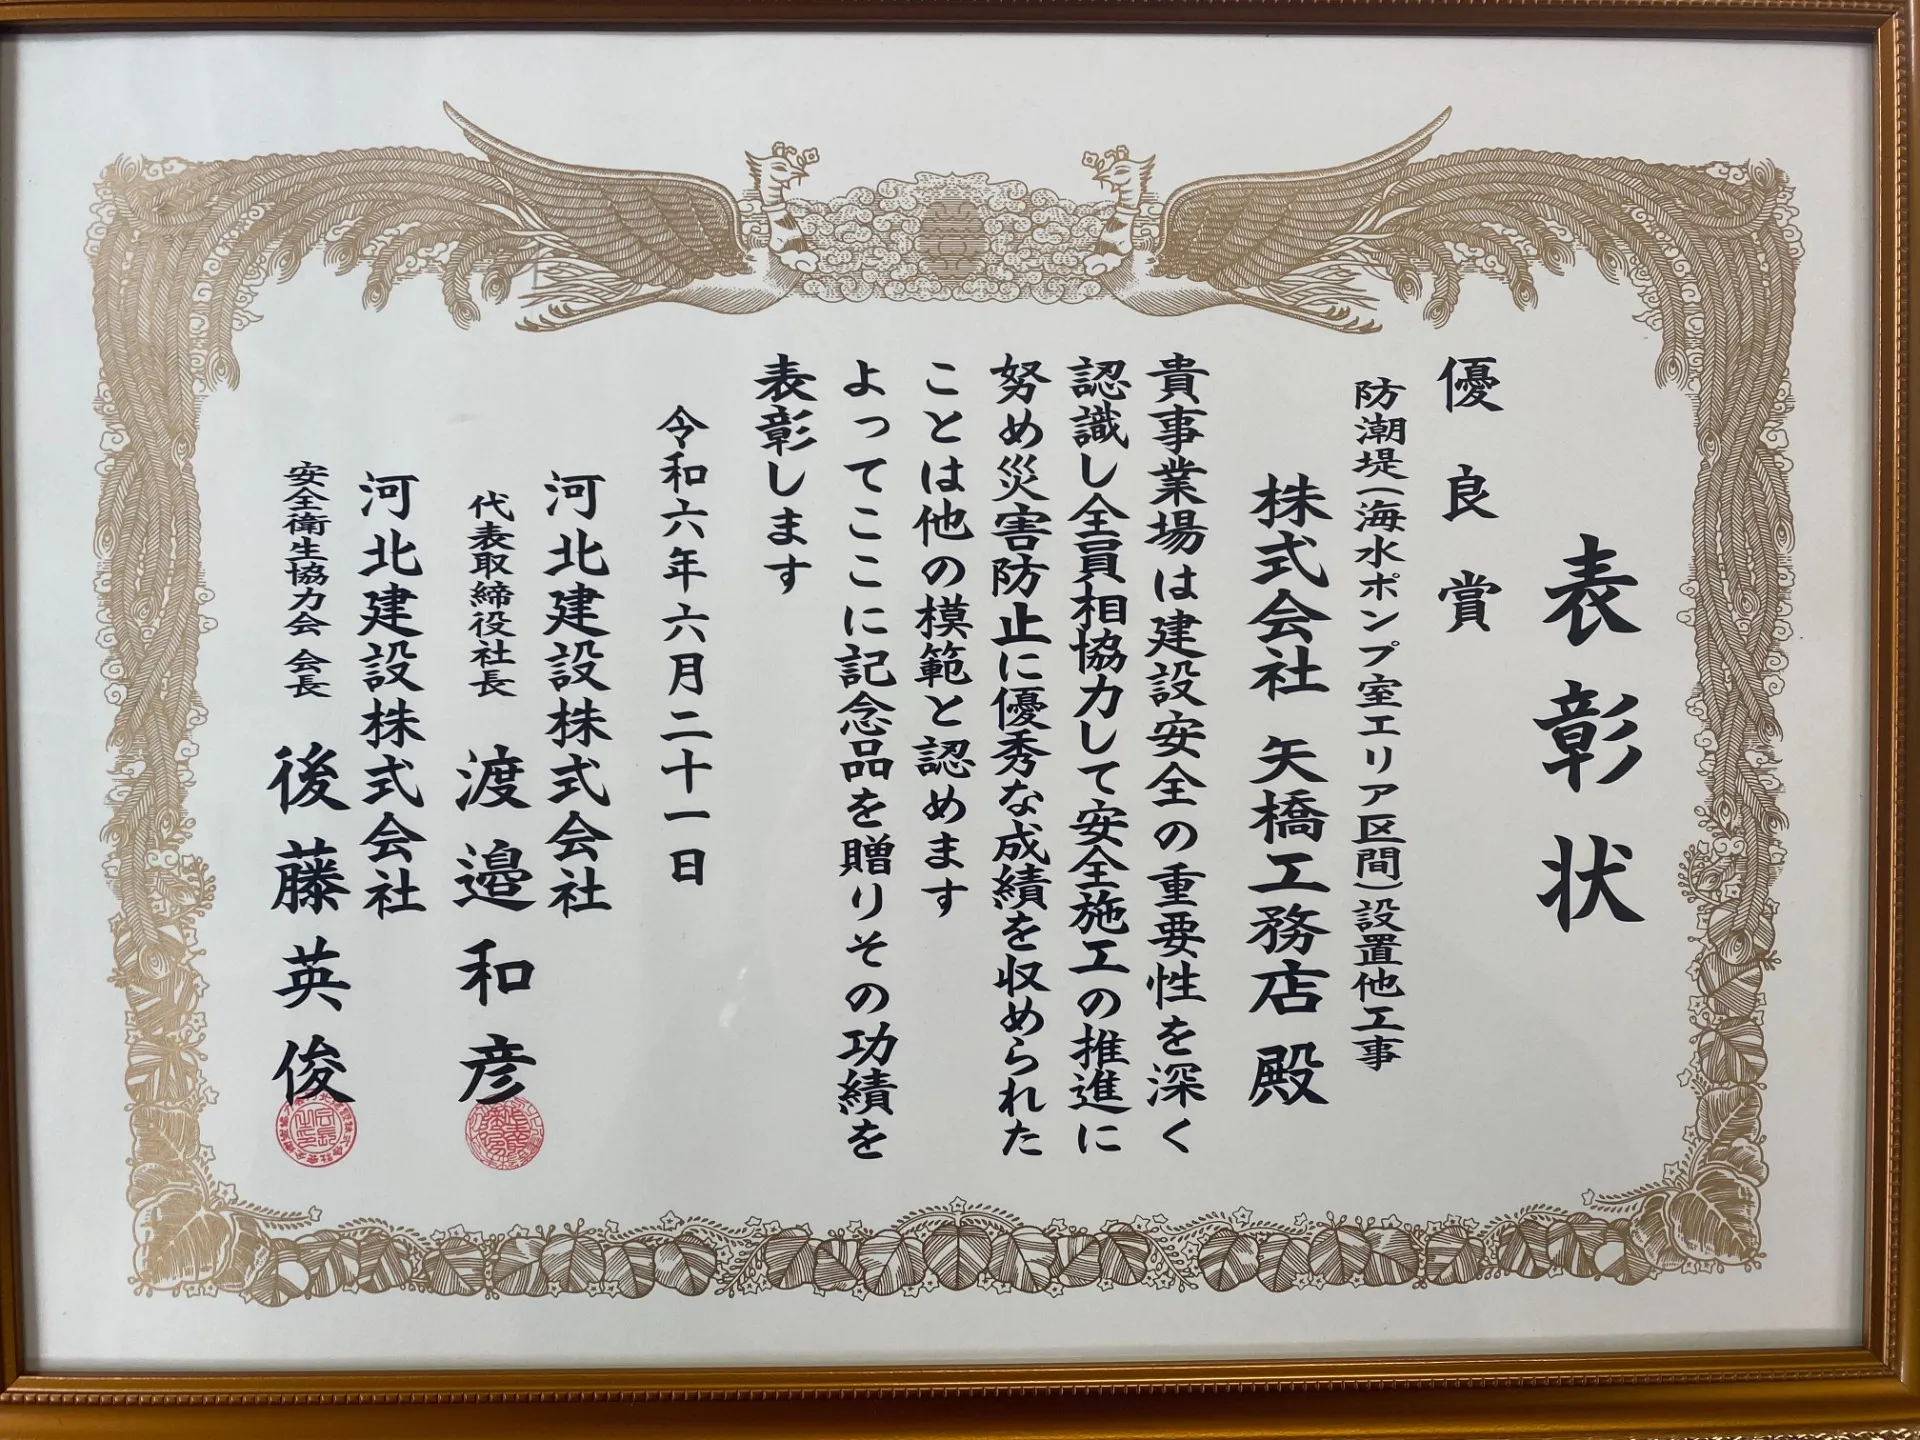 表彰状
優良賞
防潮堤(海水ポンプ室エリア区間)設置他工事
株式会社 矢橋工務店 殿
貴事業場は建設安全の重要性を深く
認識し全員相協力して安全施工の推進に
努め災害防止に優秀な成績を収められた
ことは他の模範と認めます
よってここに記念品を贈りその功績を
表彰します
令和六年六月二十一日
河北建設株式会社
代表取締役社長 渡邉和彦
河北建設株式会社
安全衛生協力会 会長 後藤英俊